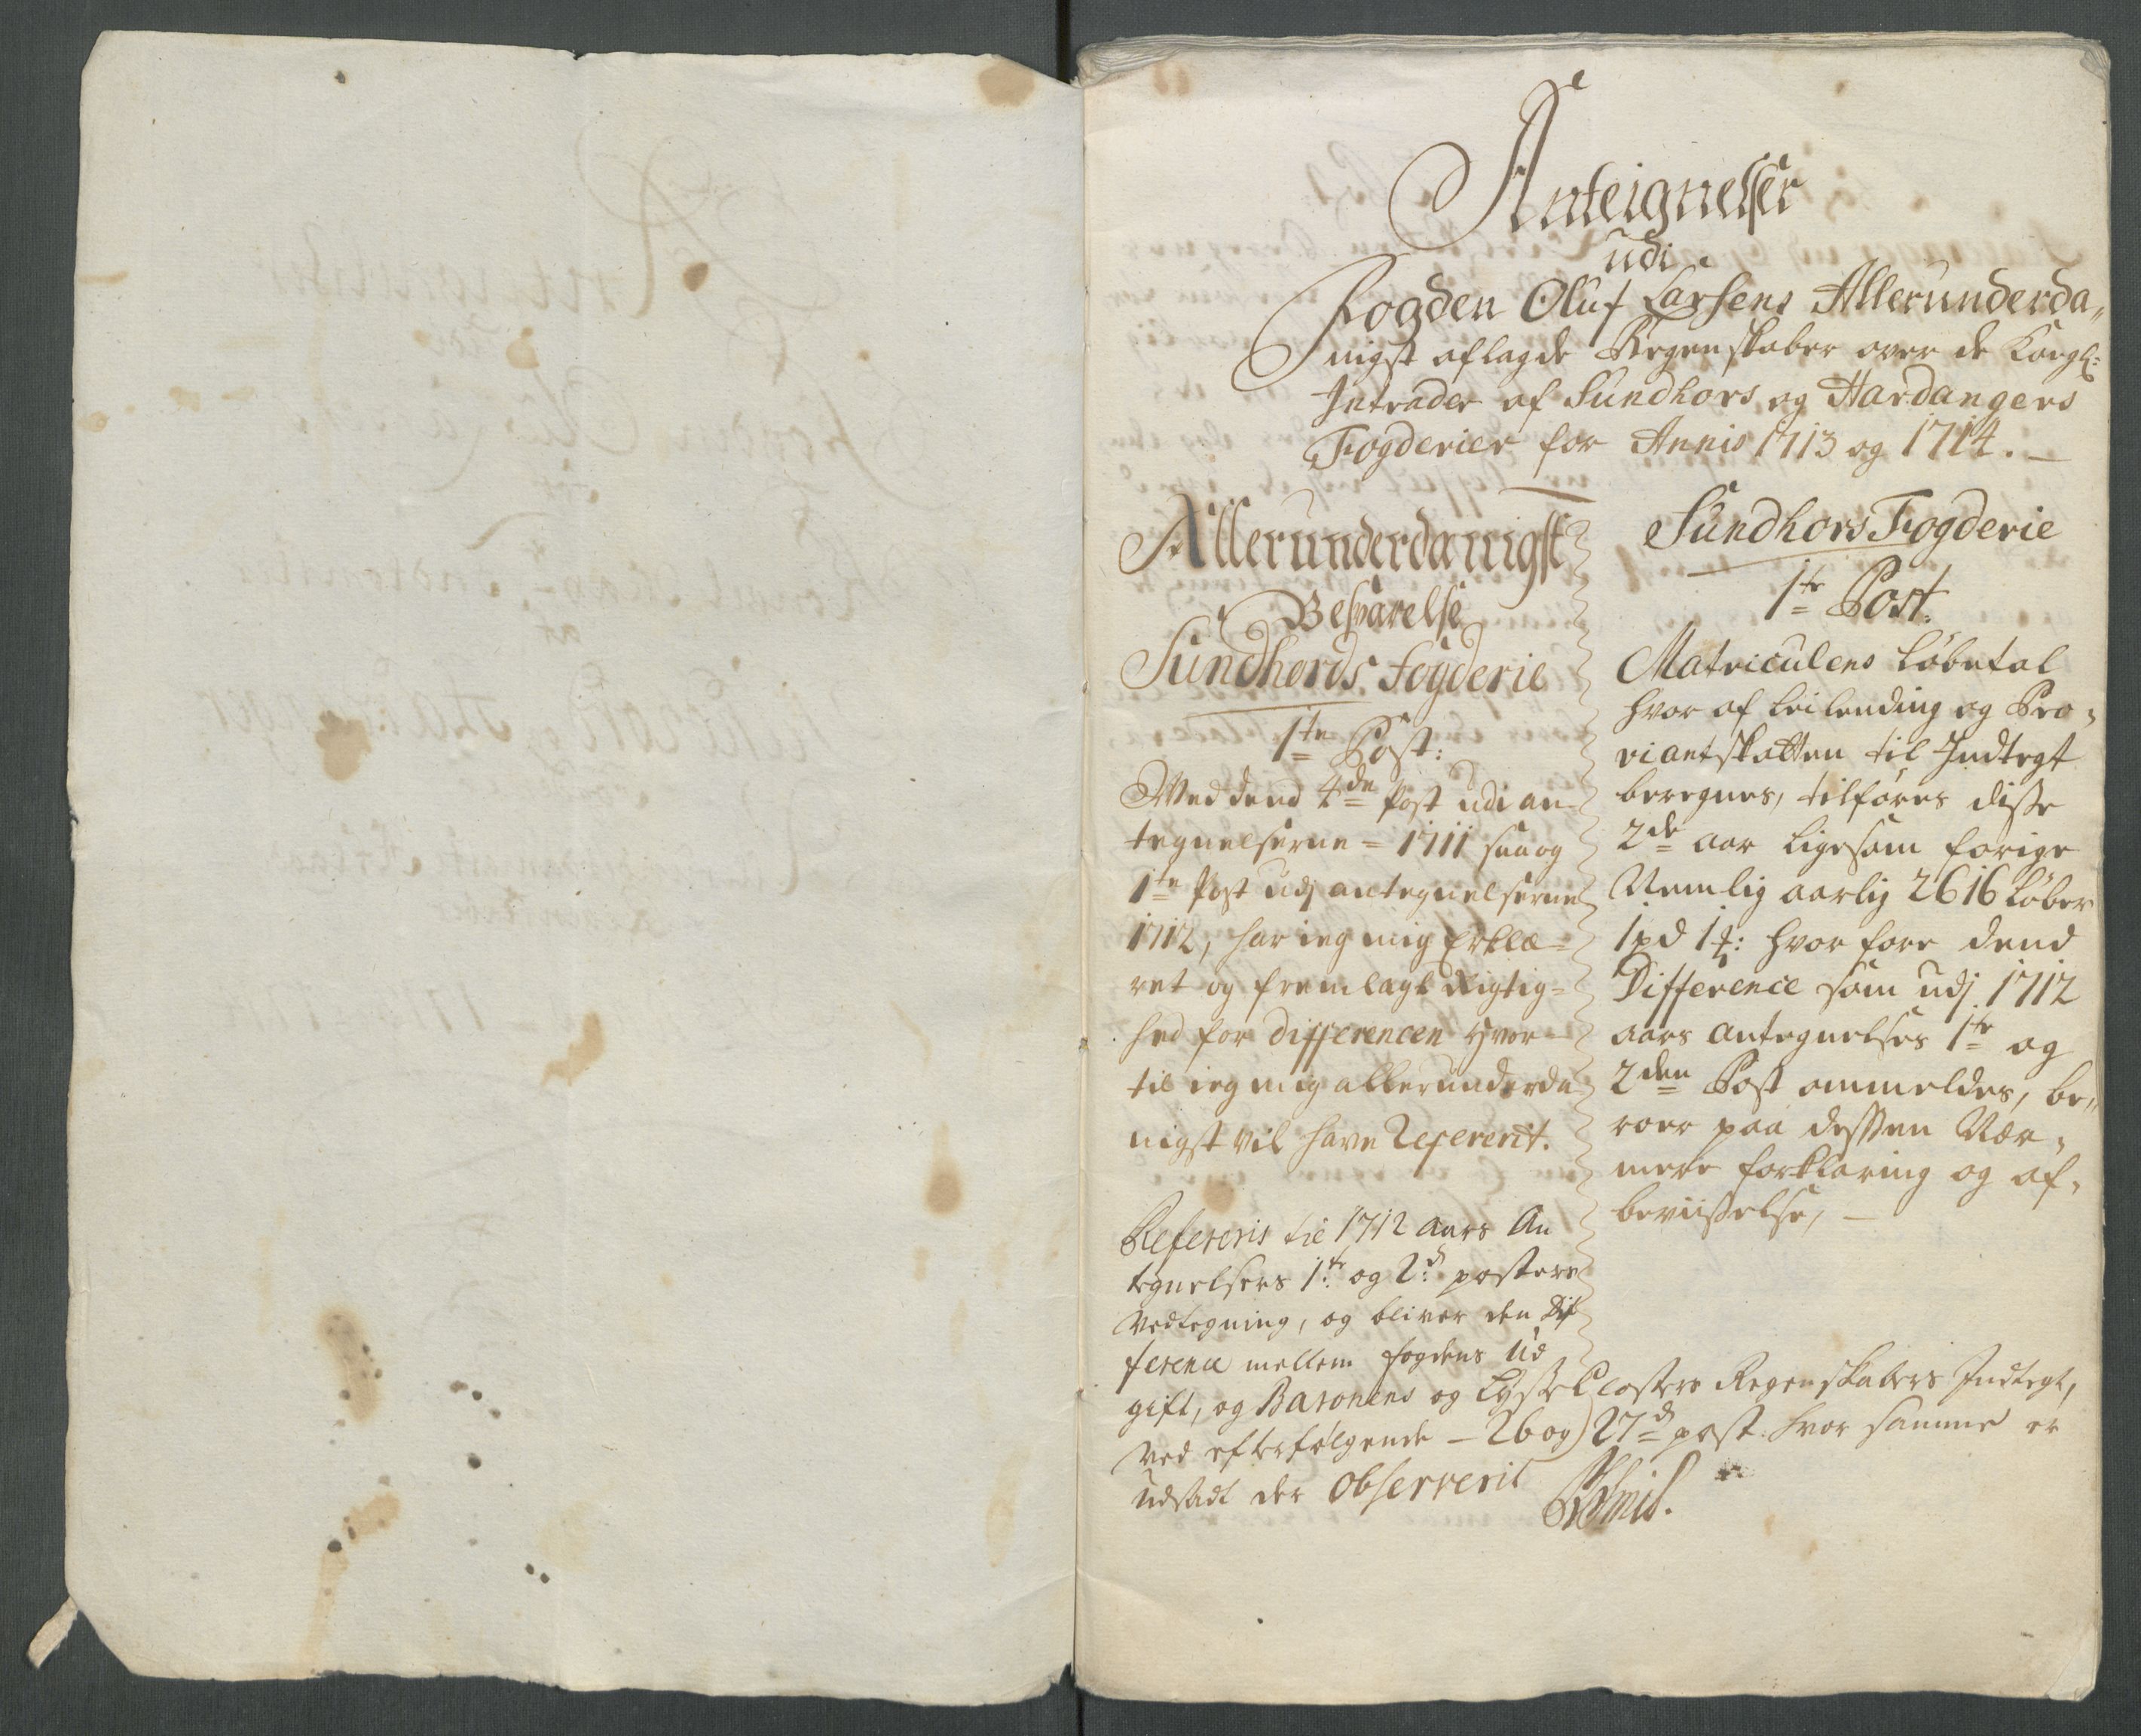 Anteignelser
udi
Fogden Oluf Larsens Allerunderda„
nigst aflagde Regenskaber over de Kongl:
Intrader af Sundhors og Hardangers
Fogderier for Annis 1713 og 1714. —
Allerunderdanigst
Besvarelse
Sundhords fogderie
1te Post:
Ved dend 4de Post udi an-
tegnelserne = 1711 saa og
1te Post udj antegnelserne
1712, har ieg mig Erklæ-
ret og fremlagt Rigtig-
hed for differencen Hvor-
til ieg mig allerunderda
nigst vil have Refererit.
Refereris til 1712 Aars An
tegnelsers 1te og 2d posters
Vedtegning, og bliver den Dif
ference mellem fogdens Ud
gift, og Baronens og Lysse Closters Regenskabers Indtegt,
Ved efterfølgende - 26 og 27d post. hvor samme er
udsadt der observerit
Sundhors Fogderie
1te Post.
Matriculens Løbetal
hvor af Leilending og Pro-
viantskatten til Indtegt
beregnes, tilføres disse
2de aar ligesom forige
Nemlig aarlig 2616 Løber
1pd 1 : hvor fore dend
Difference som udj 1712
aars antegnelses 1te og
2den Post ommeldes, be„
roer paa dessen Nær-
mere forklaring og af-
beviisselse, —